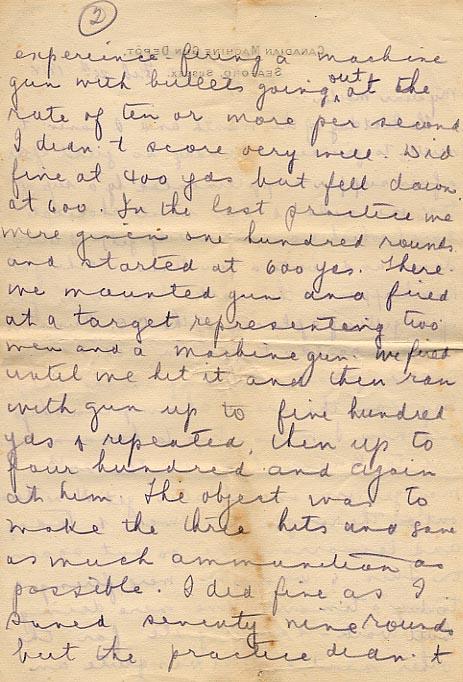 2
CANADIAN MACHINE GUN DEPOT,
SEAFORD, SUSSEX.
experience firing a machine
gun with bullets going out at the
rate of ten or more per second
I didn.t score very well. Did
fine at 400 yds but fell down
at 600. In the last practice we
were given one hundred rounds
and started at 600 yds. There
we mounted gun and fired
at a target representing two
men and a machine gun. We fired
until we hit it and then ran
with gun up to five hundred
yds & repeated, then up to
four hundred and again
at him The object was to
make the three hits and save
as much ammunition as
possible. I did fine as I
saved seventy nine rounds
but the practice didn.t